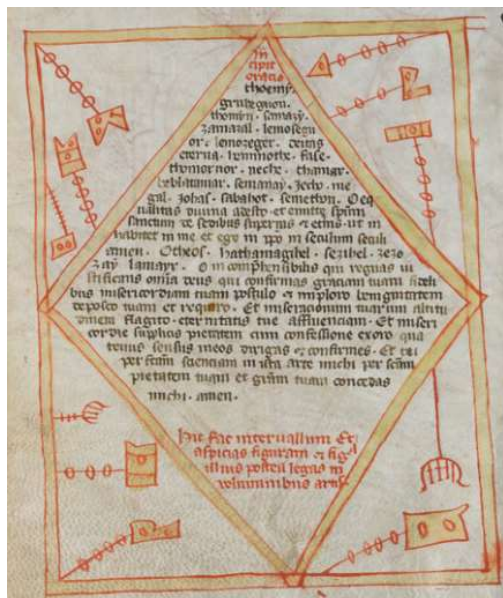 In
cipit
oratio
thoemy.
grubegnon.
thomyn. samazy.
zamazal. lemosegu
or: lemozeger. deitas
eterna. hemnothe. fase
thomornor. neche. thamar.
heblatamar. semanay. zechy. me
gal. zohas. sabahot. semetton. O eq
ualitas diuina adesto et emitte spm
sanctum de sedibus supernis et ut in
habitet in me et ego in xpo in seculum seculi
amen. Otheos. hathamagihel. sezihel. zezo
zay lamayr. O incomphensibilis qui regnas iu
stificans omia deus qui confirmas graciam tuam fideli
bus misericordiam tuam postulo et imploro benignitatem
deposco tuam et requiro. Et miseracionum tuarum altitu
dinem flagito. eternitatis tue affluenciam. Et miseri
cordie supplicis pietatem cum confessione exoro qua
tenus sensus meos dirigas et confirmes. Et
per scam scienciam in ista arte michi per scam
pietatem tuam et gram tuam concedas
michi. amen.
hic fac interuallum Et
aspicias figuram et
illius postea legas
voluminibus artis